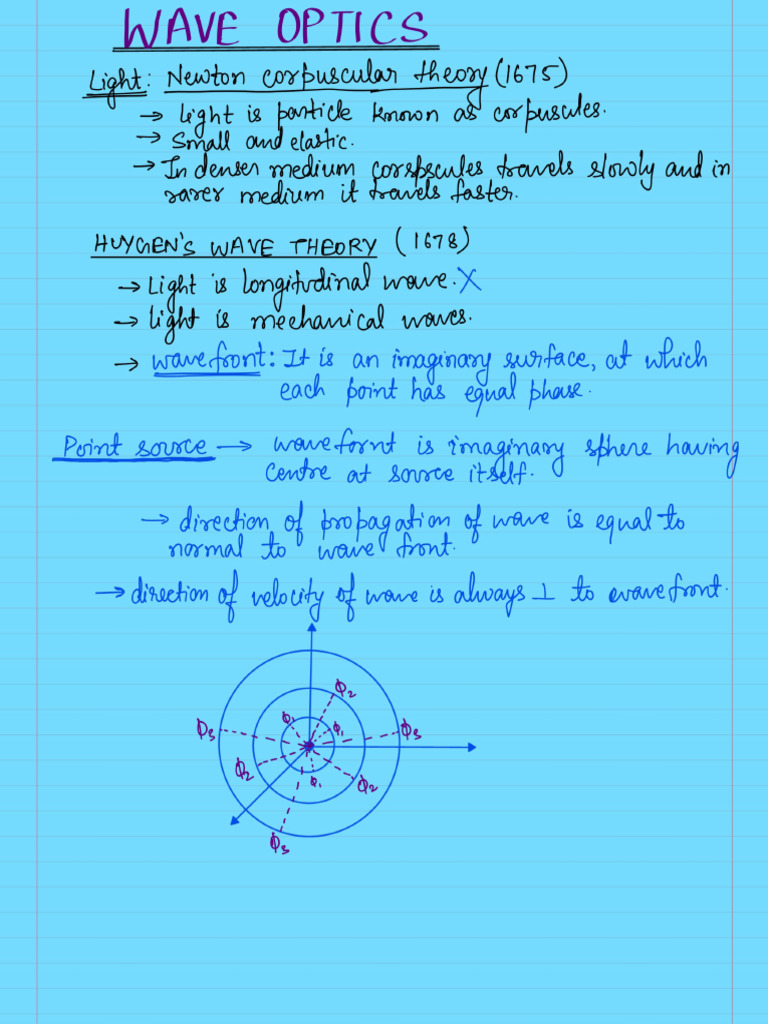 WAVE OPTICS
Light: Newton corpuscular theory (1675)
→ Light is particle known as corpuscules.
→ Small and elastic.
→ In denser medium corspscules travels slowly and in
rarer medium it travels faster.
HUYGEN'S WAVE THEORY (1678)
→ Light is longitudinal wave. X
→ Light is mechanical waves.
→ wavefront: It is an imaginary surface, at which
each point has equal phase.
Point source → wavefornt is imaginary sphere having
centre at source itself.
→ direction of propagation of wave is equal to
normal to wave front.
→ direction of velocity of wave is always ⊥ to wavefront.
ϕ2
ϕ3 ϕ1 ϕ1 ϕ3
ϕ2 ϕ1 ϕ2
ϕ3